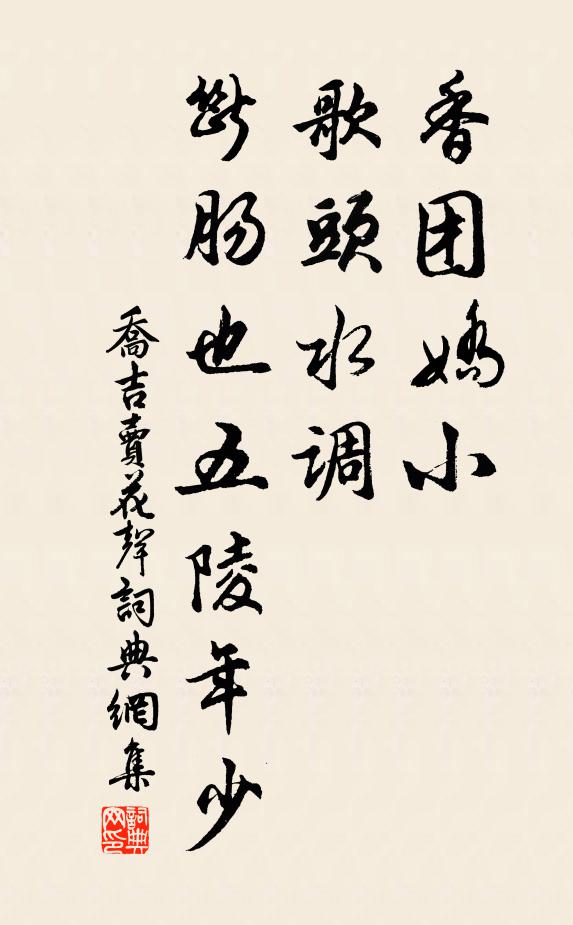 香团嬌小
歌頭水调
斷肠也五陵年少
喬吉賣花聲詞典網集
詞典网印